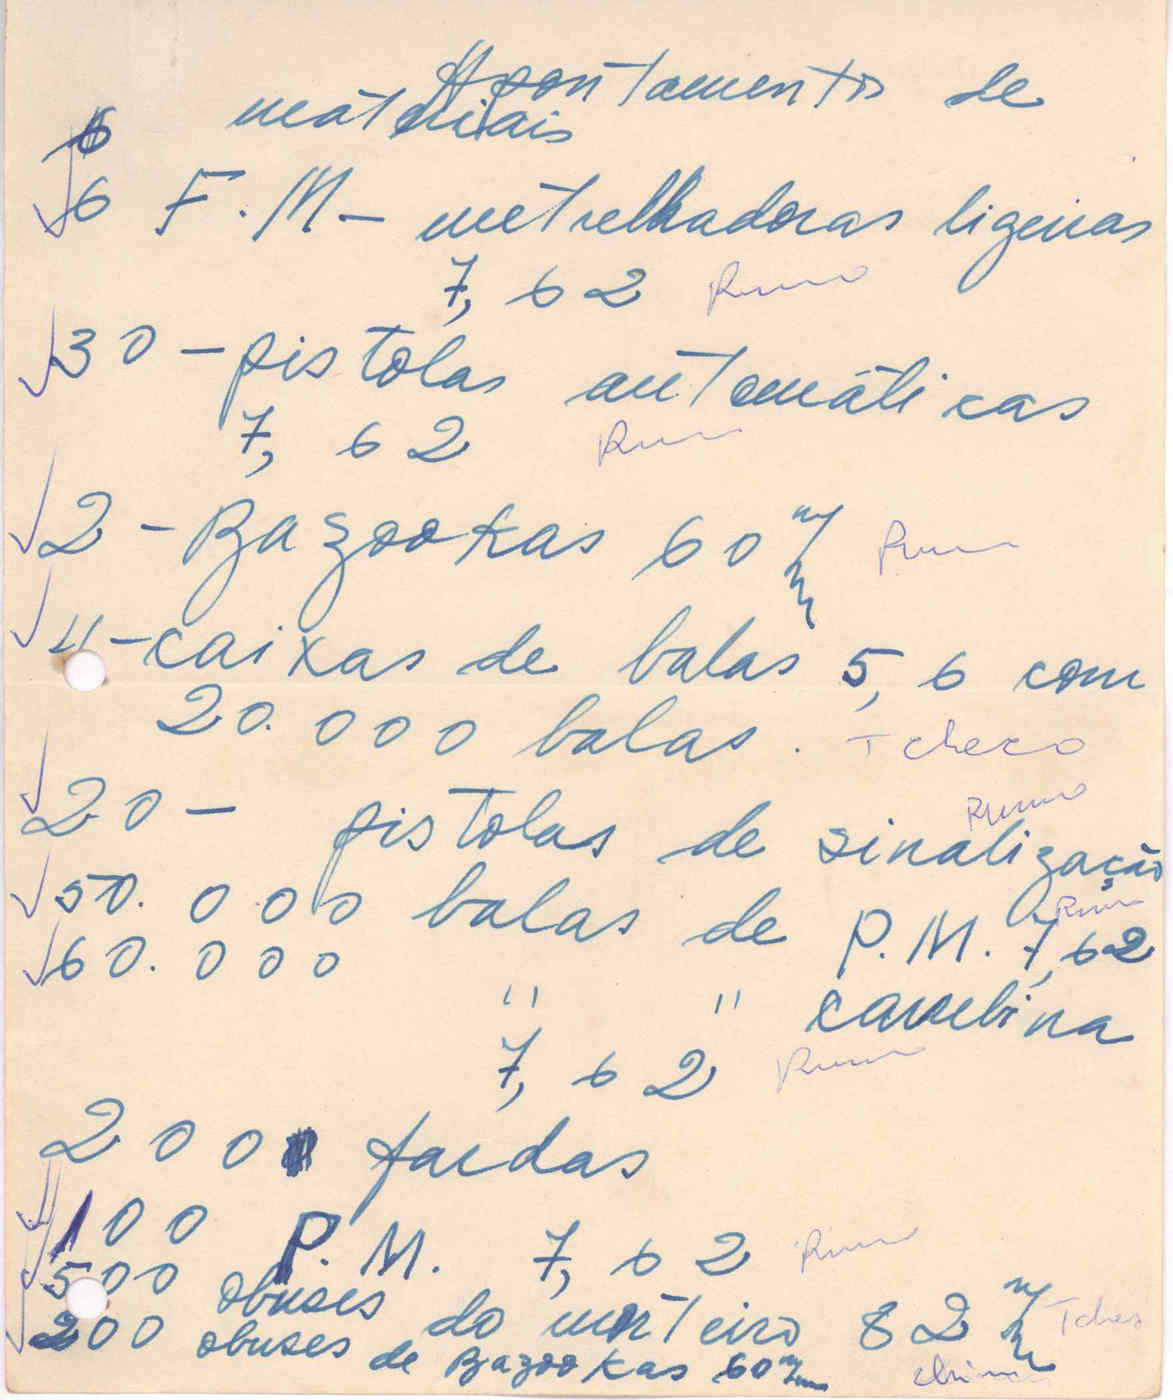 Apontamento de
materiais
6
6 F.M - metrelhadoras ligeiras
7,62 Russo
30 - pistolas automáticas
7,62 Russo
2 - Bazookas 60 m/m Russo
11 - caixas de balas 5,6 com
20.000 balas. Tcheco
20 - pistolas de sinalização Russo
50.000 balas de P.M. 7,62 Russo
60.000 " " caraebina
7,62 Russo
200 fardas
100 P.M. 7,62 Russo
500 obuses do morteiro 82 m/m Tcheco
200 obuses de Bazookas 60 m/m